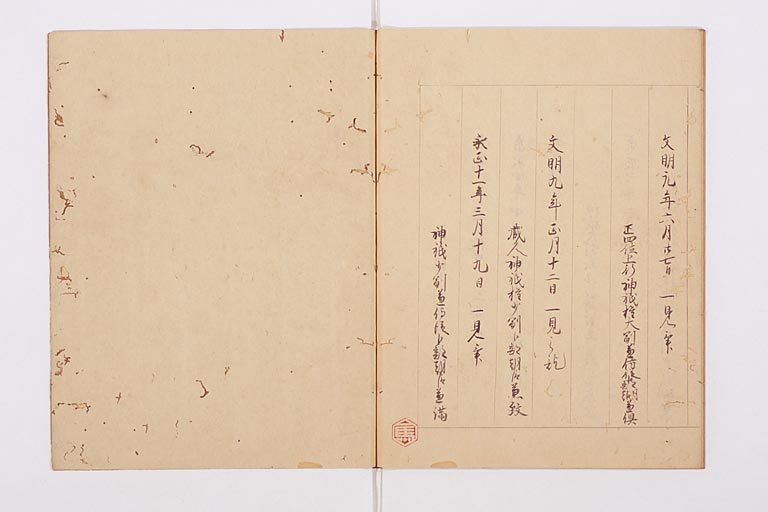 文明元年六月廿七日 一見畢
正四位上行神祇権大副兼侍従卜部朝臣兼倶
文明九年正月十二日 一見之訖
蔵人神祇権少副卜部朝臣兼致
永正十一年三月十九日 一見畢
神祇少副兼侍従卜部朝臣兼満